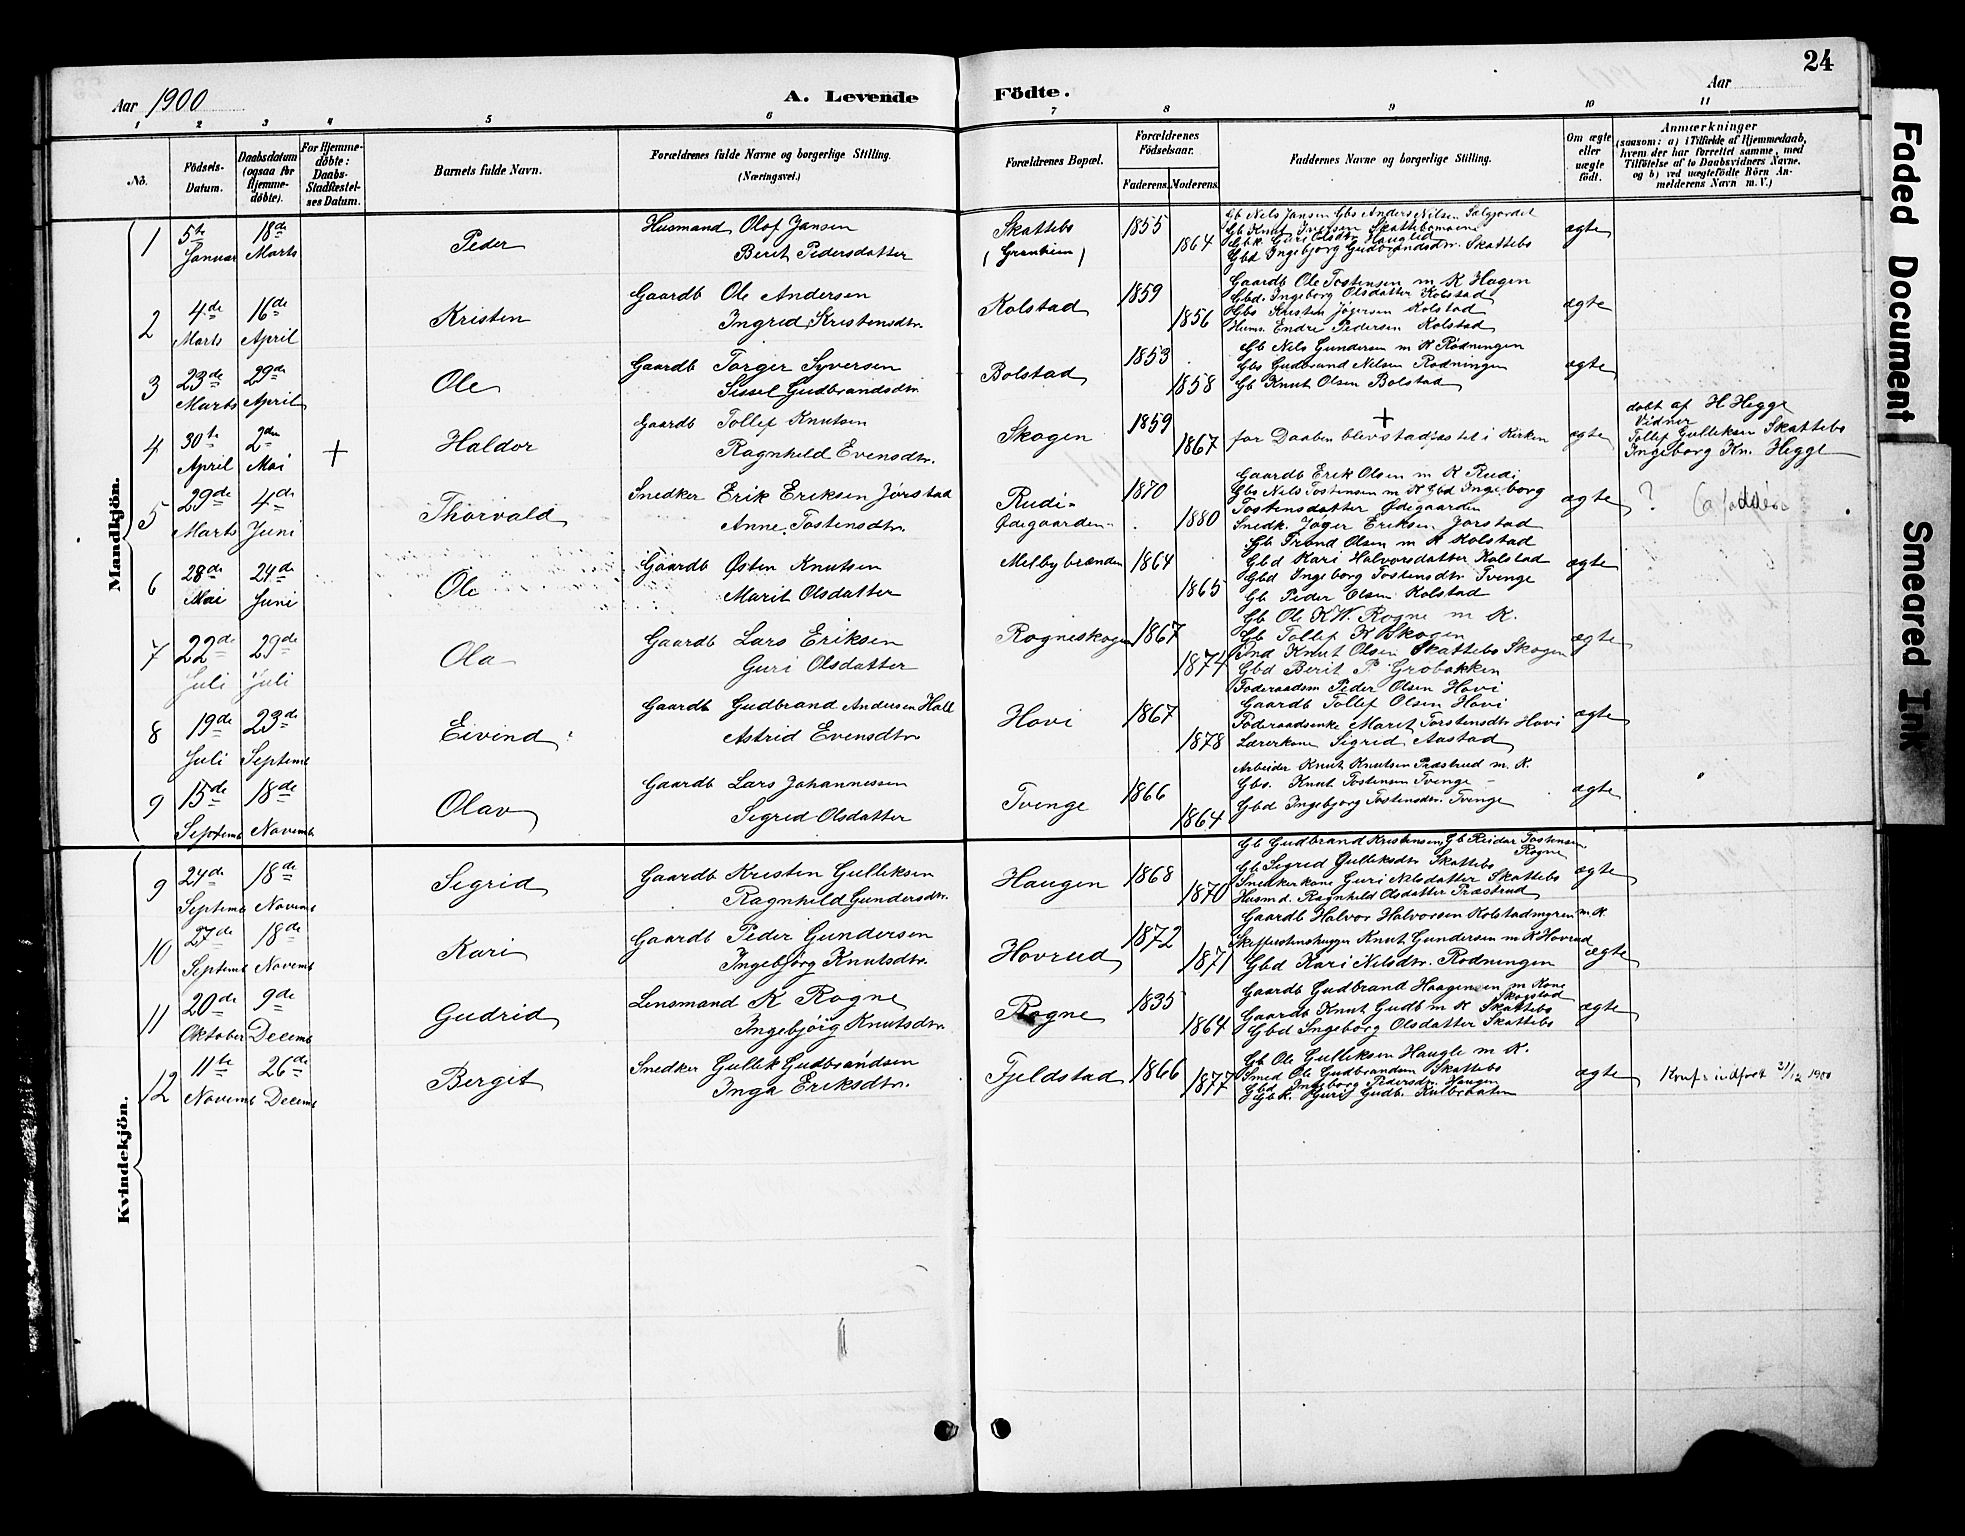 24
Aar 1900
A. Levende
Födte.
Aar
1 2 3 4 5 6 7 8 9 10 11
No.
Födsels-Datum.
Daabsdatum (ogsaa for Hjemme-döbte).
For Hjemme-döbte: Daabs-Stadfæstel-ses Datum.
Barnets fulde Navn.
Forældrenes fulde Navne og borgerlige Stilling.
(Næringsvei.)
Forældrenes Bopæl.
Forældrenes Födselsaar.
Faderens. Moderens.
Faddernes Navne og borgerlige Stilling.
Om ægte eller uægte födt.
Anmærkninger
(saasom: a) i Tilfælde af Hjemmedaab,
hvem der har forrettet samme, med
Tilföielse af to Daabsvidners Navne,
og b) ved uægtefödte Börn An-
melderens Navn m. V.)
Mandkjön.
1
5te Januar
18de Marts
Peder
Husmand Olof Jansen
Berit Pedersdatter
Skattebo
(Granheim)
1855
1864
Gb Nels Jansen Gbs Anders Nilsen
Gb Knut Iversen
Gbk. Guri Olsdtr Hauglid
Gbd Ingebjorg Gudbrandsdtr. Skattebo
ægte
2
4de Marts
16de April
Kristen
Gaardb Ole Andersen
Ingrid Kristensdtr.
Kolstad
1859
1856
Gaardb Ole Tostensen m K Hagen
Gbd. Ingeborg Olsdatter Kolstad
Gbs Kristen Jögersen Kolstad
Husm. Endre Pedersen Kolstad
ægte
3
23de Marts
29de April
Ole
Gaardb Torger Syversen
Sissel Gudbrandsdtr
Bolstad
1853
1858
Gb Nels Gundersen m K Rodningen
Gbs Gudbrand Nelsen Rodningen
Gb Knut Olsen Bolstad
ægte
4
30te April
2den Mai
+
Haldor
Gaardb Tollef Knutsen
Ragnhild Evensdtr.
Skogen
1859
1867
+
for Daaben blev stadfæstet i Kirken
ægte
döbt af H Hegge
Vidner
Tollef Gulliksen Skattebo
Ingeborg Kn. Hegge
5
29de Marts
4de Juni
Thorvald
Snedker Erik Eriksen Jorstad
Anne Tostensdtr.
Rudi-
Ødegaarden
1870
1880
Gaardb Erik Olsen m K Rudi
Gbs Nels Tostensen m K Gbd Ingeborg
Tostensdatter Ødegaarden
Snedk. Jöger Eriksen Jorstad
ægte
?
6
28de Mai
24de Juni
Ole
Gaardb Østen Knutsen
Marit Olsdatter
Melbybrænden
1864
1865
Gb Trond Olsen m K Kolstad
Gbd Kari Halvorsdatter Kolstad
Gbd Ingeborg Tostensdtr Tvenge
Gb Peder Olsen Kolstad
ægte
7
22de Juli
29de Juli
Ola
Gaardb Lars Eriksen
Guri Olsdatter
Rogneskogen
1867
1874
Gb Ole K W. Rogne m K.
Gb Tollef K Skogen
Ind Knut Olsen Skattebo Skogen
Gbd Berit P Grobakken
ægte
8
19de Juli
23de Septemb
Eivind
Gaardb Gudbrand Andersen Hall
Astrid Evensdtr
Hovi
1867
1878
Foderaadsm Peder Olsen Hovi
Gaardb Tollef Olsen Hovi
Foderaadsenke Marit Torstensdtr Hovi
Lærerkone Sigrid Aastad
ægte
9
15de Septemb
18de Novemb
Olav
Gaardb Lars Johannessen
Sigrid Olsdatter
Tvenge
1866
1864
Arbeider Knut Knutsen Præstrud m. K.
Gbs. Knut Tostensen Tvenge
Gbd Ingebjorg Tostensdtr. Tvenge
ægte
Kvindekjön.
9
24de Septemb
18de Novemb
Sigrid
Gaardb Kristen Gulliksen
Ragnhild Gundersdtr.
Haugen
1868
1870
Gb Gudbrand Kristensen, Gb Reidar Tostensen
Rogne
Gb Sigrid Gulliksdtr Skattebo
Snedkerkone Guri Nelsdatter Skattebo
Husmd. Ragnhild Olsdatter Præstrud
ægte
10
27de Septemb
18de Novemb
Kari
Gaardb Peder Gundersen
Ingebjörg Knutsdtr.
Hovrud
1872
1871
Gaardb Halvor Halvorsen Kolstadmyren m. K.
Skifferstenshugger Knut Gundersen m K Hovrud
Gbd Kari Nilsdtr. Rodningen
ægte
11
20de Oktober
9de Decemb
Gudrid
Lensmand K Rogne
Ingebjörg Knutsdtr.
Rogne
1835
1864
Gaardb Gudbrand Haagensen m Kone
Skogstad
Gaardb Knut Gudb m K Skattebo
Gbd Ingeborg Olsdatter Skattebo
ægte
12
11te Novemb
26de Decemb
Bergit
Snedker Gullik Gudbrandsen
Inga Eriksdtr.
Fjeldstad
1866
1877
Gb Ole Gulliksen Haugli m K.
Smed Ole Gudbrandsen Skattebo
Gbd Ingeborg Pedersdtr. Haugen
Gbk. Guri Gudb. Kulbraaten
ægte
Konf. indført 31/12 1900
Faded Document
Smeared Ink